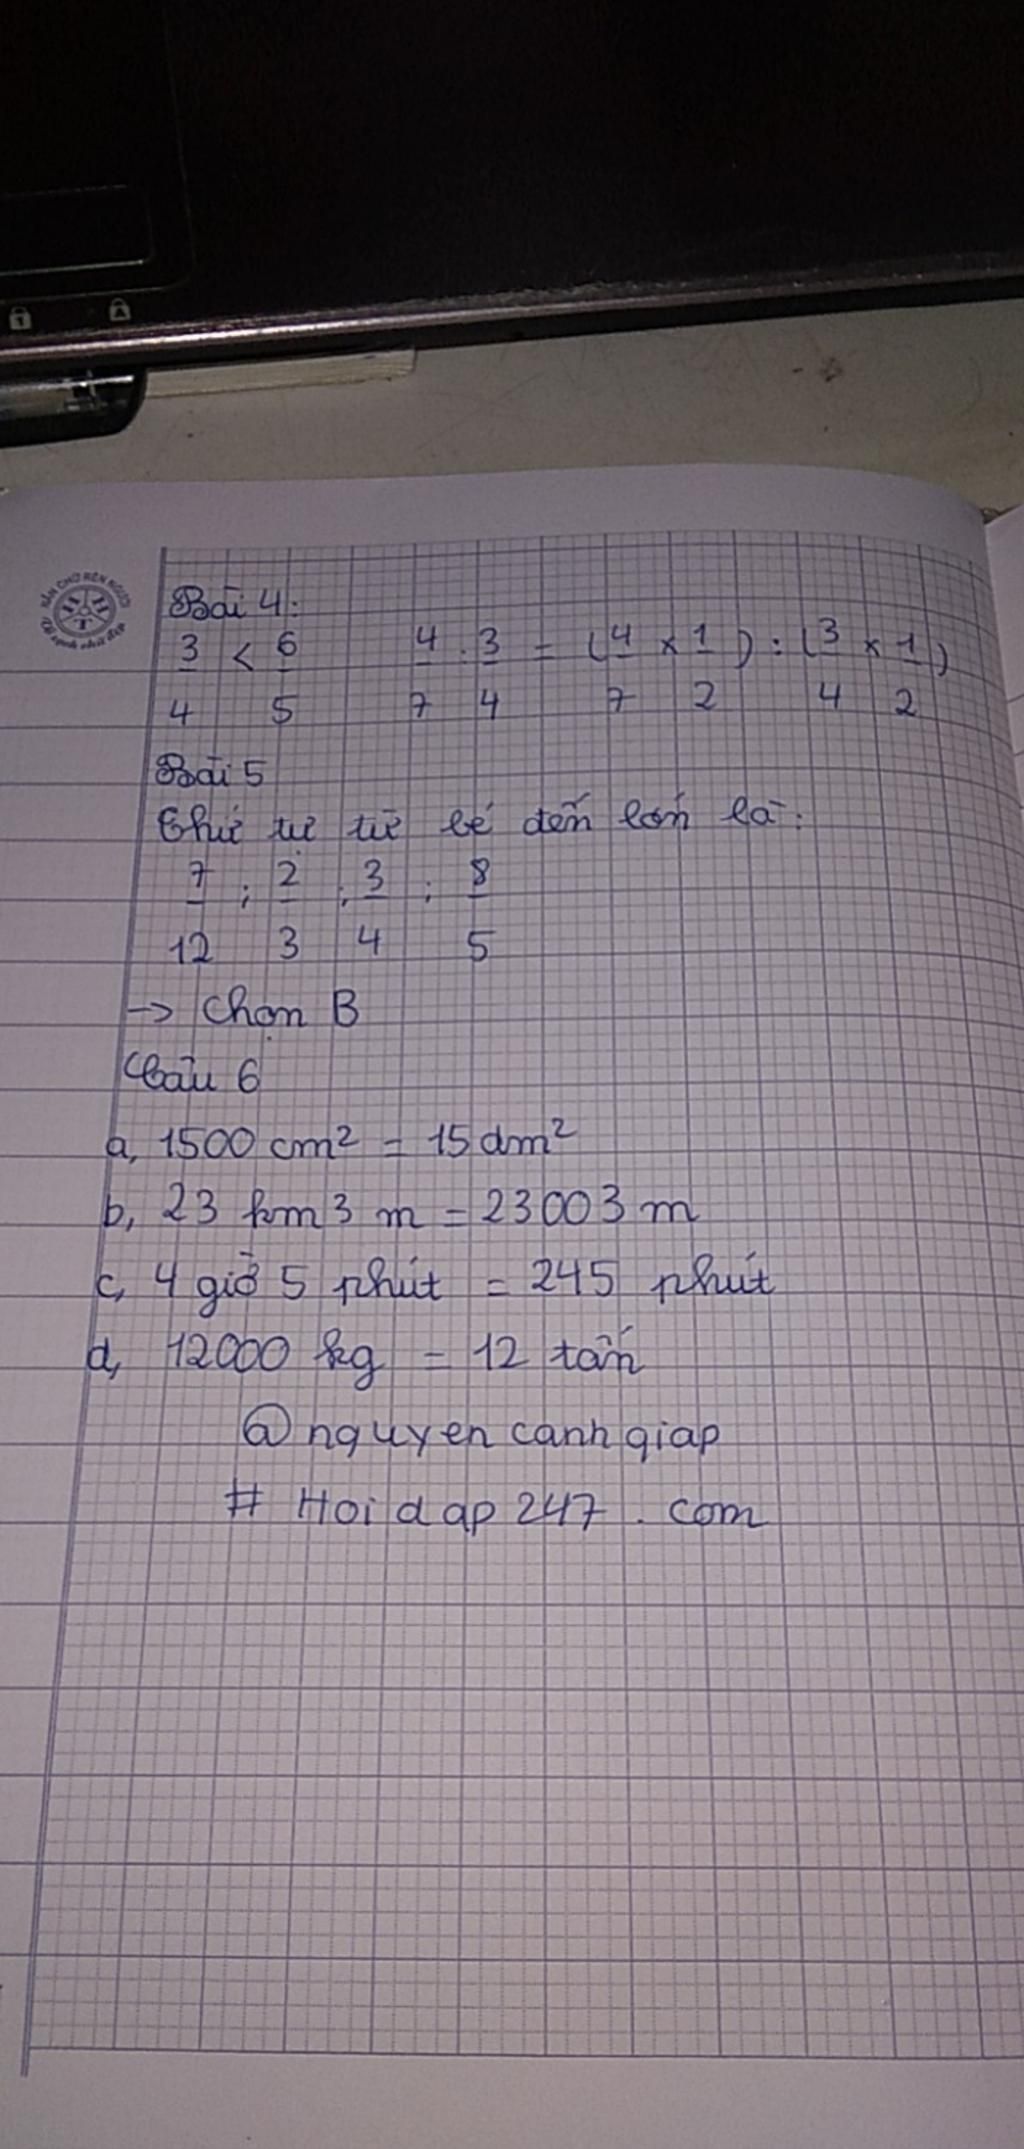 Bài 4:
3/4 < 6/5 4/7 : 3/4 = (4/7 × 1/2) : (3/4 × 1/2)
Bài 5
Thứ tự từ bé đến lớn là:
7/12 ; 2/3 ; 3/4 ; 8/5
→ Chọn B
Câu 6
a, 1500 cm² = 15 dm²
b, 23 km 3 m = 23003 m
c, 4 giờ 5 phút = 245 phút
d, 12000 kg = 12 tấn
@ nguyen canh giap
# Hoi dap 247 . com